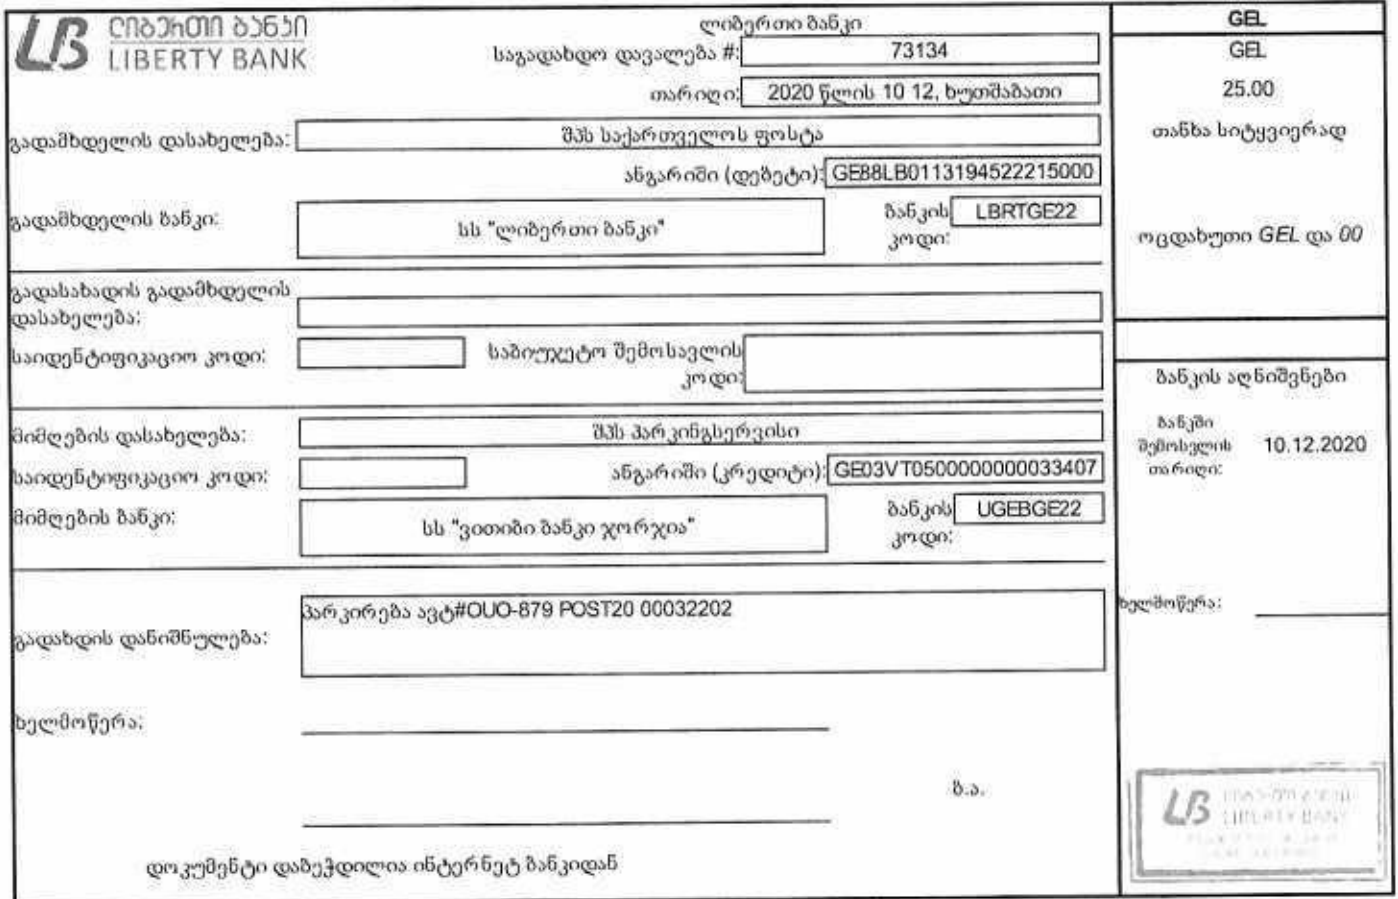 ლიბერთი ბანკი
LIBERTY BANK
ლიბერთი ბანკი
საგადახდო დავალება #: 73134
თარიღი: 2020 წლის 10 12, ხუთშაბათი
გადამხდელის დასახელება: შპს საქართველოს ფოსტა
ანგარიში (დებეტი): GE88LB0113194522215000
გადამხდელის ბანკი: სს "ლიბერთი ბანკი" ბანკის კოდი: LBRTGE22
გადასახადის გადამხდელის
დასახელება:
საიდენტიფიკაციო კოდი: საბიუჯეტო შემოსავლის
კოდი:
მიმღების დასახელება: შპს პარკინგსერვისი
საიდენტიფიკაციო კოდი: ანგარიში (კრედიტი): GE03VT0500000000033407
მიმღების ბანკი: სს "ვითიბი ბანკი ჯორჯია" ბანკის კოდი: UGEBGE22
გადახდის დანიშნულება: პარკირება ავტ#OUO-879 POST20 00032202
ხელმოწერა:
ბ.ა.
დოკუმენტი დაბეჭდილია ინტერნეტ ბანკიდან
GEL
GEL
25.00
თანხა სიტყვიერად
ოცდახუთი GEL და 00
ბანკის აღნიშვნები
ბანკში
შემოსვლის 10.12.2020
თარიღი:
ხელმოწერა:
LIBERTY BANK